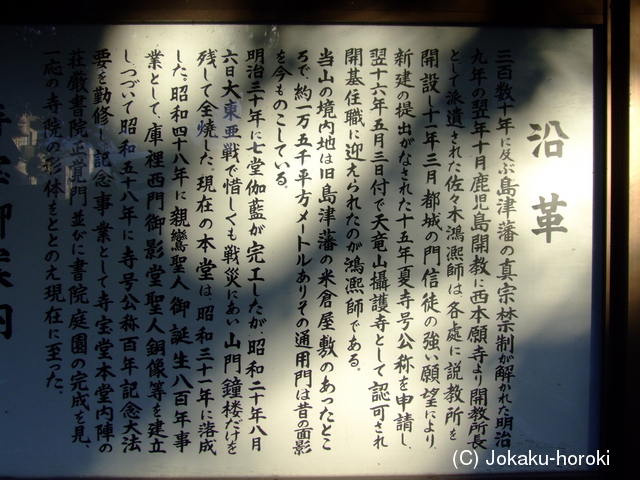 沿革
三百数十年に及ぶ島津藩の真宗禁制が解かれた明治
九年の翌年十月鹿児島開教に西本願寺より開教所長
として派遣された佐々木鴻熙師は各處に説教所を
開設し十一年三月都城の門信徒の強い願望により、
新建の提出がなされた十五年夏寺号公称を申請し、
翌十六年五月三日付で天竜山攝護寺として認可され
開基住職に迎えられたのが鴻熙師である。
当山の境内地は旧島津藩の米倉屋敷のあったとこ
ろで、約一万五千平方メートルありその通用門は昔の面影
を今ものこしている。
明治三十年に七堂伽藍が完工したが、昭和二十年八月
六日大東亜戦で惜しくも戦災にあい山門鐘楼だけを
残して全焼した。現在の本堂は、昭和三十一年に落成
した。昭和四十八年に親鸞聖人御誕生八百年事
業として、庫裡西門御影堂聖人銅像等を建立
しつづいて昭和五十八年に寺号公称百年記念大法
要を勤修し、記念事業として寺宝堂本堂内陣の
荘厳書院正覚門並びに書院庭園の完成を見、
一応の寺院の形体をととのえ現在に至った。
寺宝御案内
(C) Jokaku-horoki